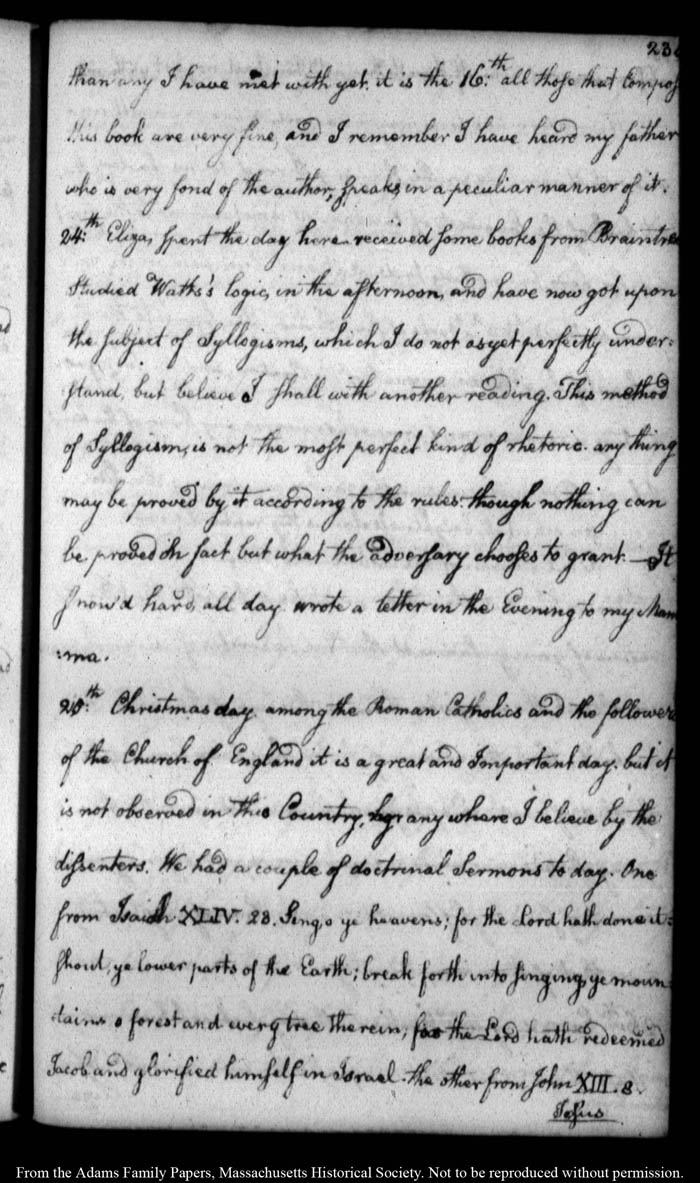 23
than any I have met with yet. it is the 16:th all those that Compos
this book are very fine, and I remember I have heard my father
who is very fond of the author, speaks, in a peculiar manner of it.
24:th Eliza, spent the day here. received some books from Braintre
Studied Watts's logic, in the afternoon, and have now got upon
the subject of Syllogisms, which I do not as yet perfectly under=
stand, but believe I shall with another reading. This method
of Syllogism, is not the most perfect kind of rhetoric. any thing
may be proved by it according to the rules: though nothing can
be proved in fact but what the adversary chooses to grant. — It
snow'd hard, all day. wrote a letter in the Evening to my Mam
:ma.
25:th Christmas day. among the Roman Catholics and the follower
of the Church of England it is a great and Important day. but it
is not observed in this Country, any where I believe by the
dissenters. We had a couple of doctrinal Sermons to day. One
from Isaiah XLIV. 23. Sing, o ye heavens; for the Lord hath done it:
shout, ye lower parts of the Earth; break forth into singing, ye moun
tains o forest and every tree therein; for the Lord hath redeemed
Jacob and glorified himself in Israel. the other from John XIII. 8.
Jesus
From the Adams Family Papers, Massachusetts Historical Society. Not to be reproduced without permission.